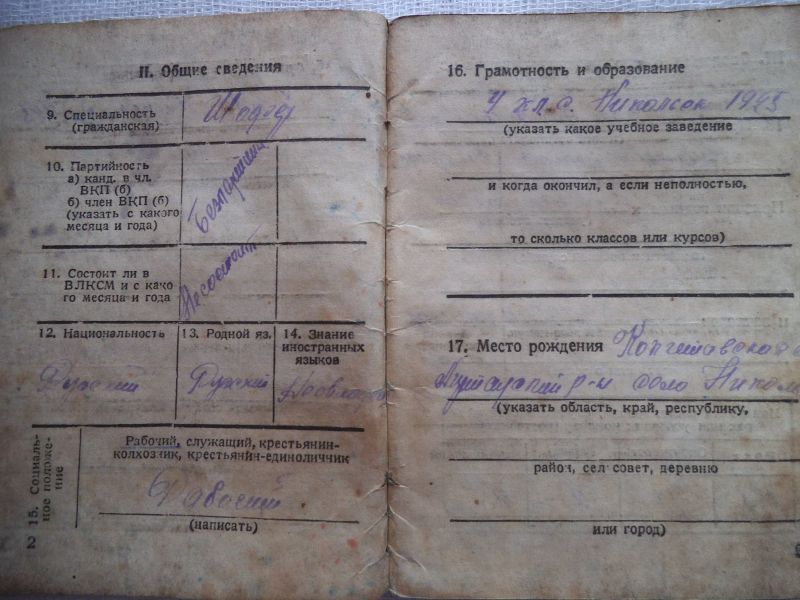 II. Общие сведения
9. Специальность
(гражданская)
10. Партийность
а) канд. в чл.
ВКП (б)
б) член ВКП (б)
(указать с какого
месяца и года)
Беспартийный
11. Состоит ли в
ВЛКСМ и с како
го месяца и года
Несостоит
12. Национальность
Русский
13. Родной яз.
Русский
14. Знание
иностранных
языков
15. Социаль-
ное положе-
ние
Рабочий, служащий, крестьянин-
колхозник, крестьянин-единоличник
Рабочий
(написать)
2
16. Грамотность и образование
4 кл. с. 1945
(указать какое учебное заведение
и когда окончил, а если неполностью,
то сколько классов или курсов)
17. Место рождения
р-н село
(указать область, край, республику,
район, сел совет, деревню
или город)